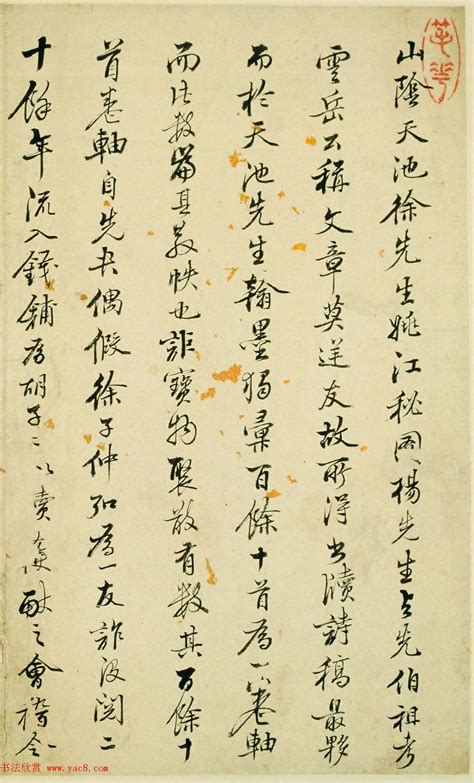 山陰天池徐先生姚江秘圖楊先生与先伯祖考
雲岳公稱文章莫逆友故所得書牘詩稿最夥
而於天池先生翰墨獨彙百餘十首為一卷軸
而此數篇其散帙也詎寶物聚散有數其百餘十
首卷軸自先大偶假徐子仲知為一友詐沒閱二
十餘年流入錢鋪為胡子二以賣酬之會稽令
书法欣赏 www.yac8.com